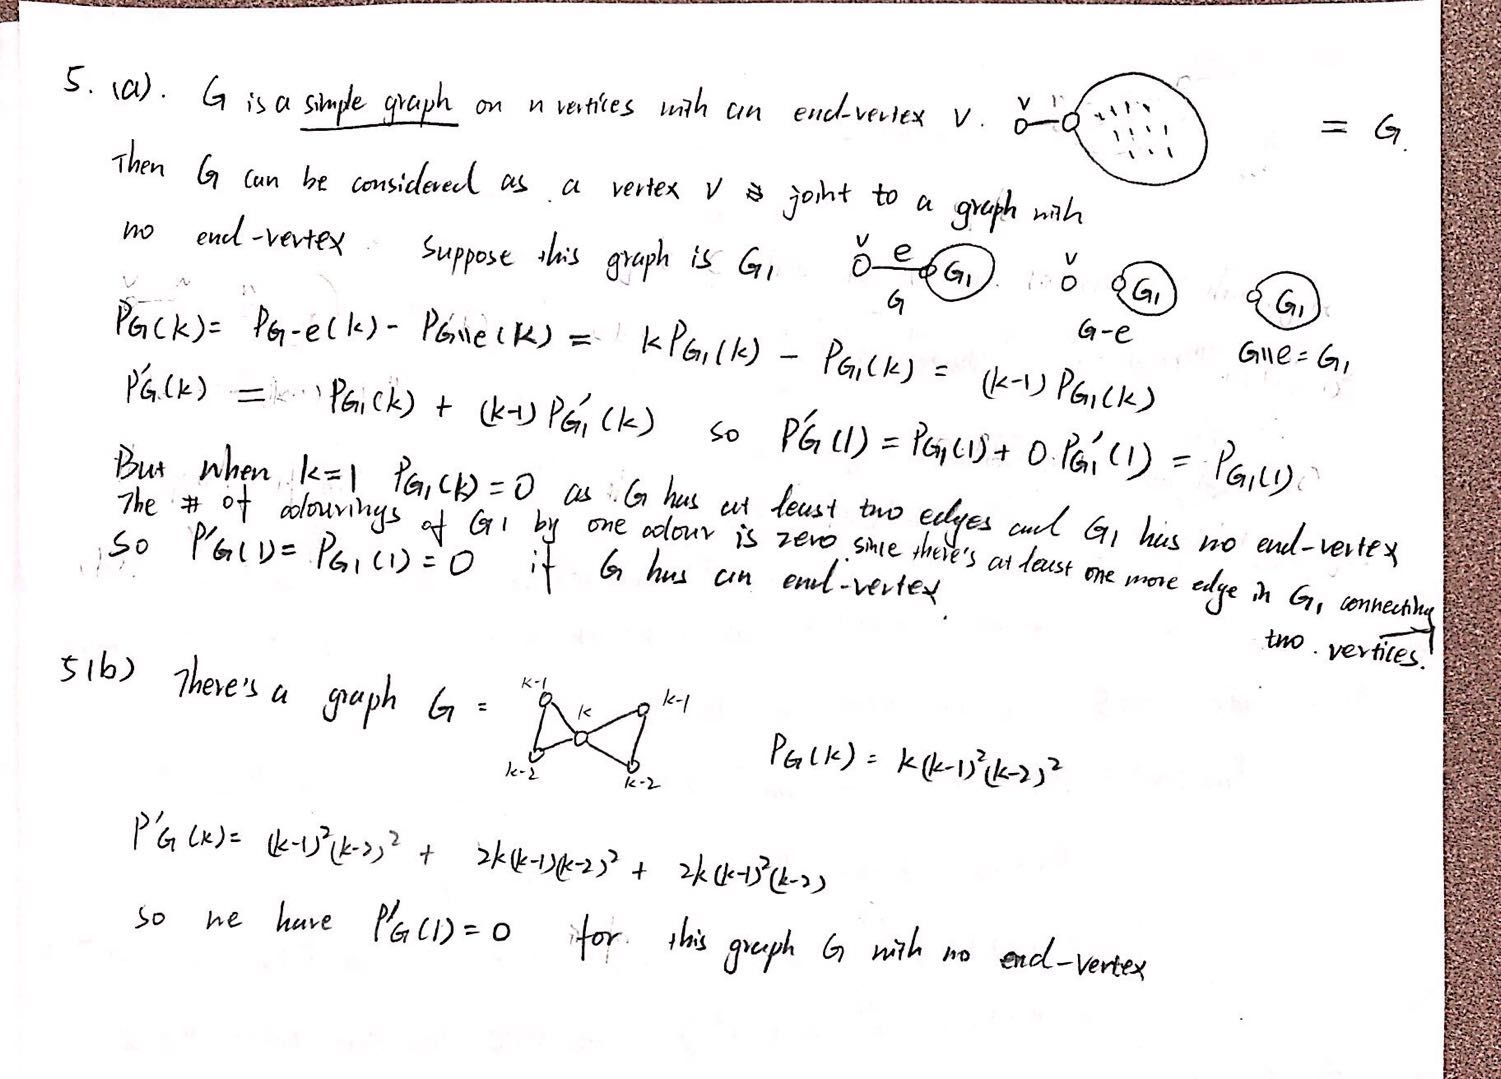 5. (a). G is a simple graph on n vertices with an end-vertex V. V = G.
Then G can be considered as a vertex V joint to a graph with
no end-vertex. Suppose this graph is G1 V e G1 G V G1 G-e G1 G\\e = G1
PG(k) = PG-e(k) - PG\\e(k) = kPG1(k) - PG1(k) = (k-1) PG1(k)
P'G(k) = PG1(k) + (k-1) PG1'(k) so P'G(1) = PG1(1) + 0·PG1'(1) = PG1(1).
But when k=1 PG1(k) = 0 as G has at least two edges and G1 has no end-vertex
The # of colourings of G1 by one colour is zero since there's at least one more edge in G1 connecting
two vertices.
So P'G(1) = PG1(1) = 0 if G has an end-vertex.
5(b) There's a graph G = k-1 k k-1 k-2 k-2 PG(k) = k(k-1)²(k-2)²
P'G(k) = (k-1)²(k-2)² + 2k(k-1)(k-2)² + 2k(k-1)²(k-2)
so we have P'G(1) = 0 for this graph G with no end-vertex